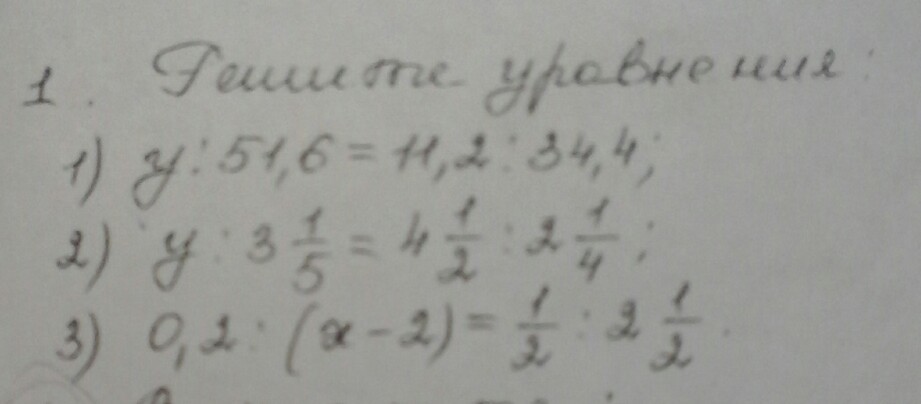 1. Решите уравнения:
1) y : 51,6 = 11,2 : 34,4;
2) y : 3 1/5 = 4 1/2 : 2 1/4;
3) 0,2 : (x - 2) = 1/2 : 2 1/2.